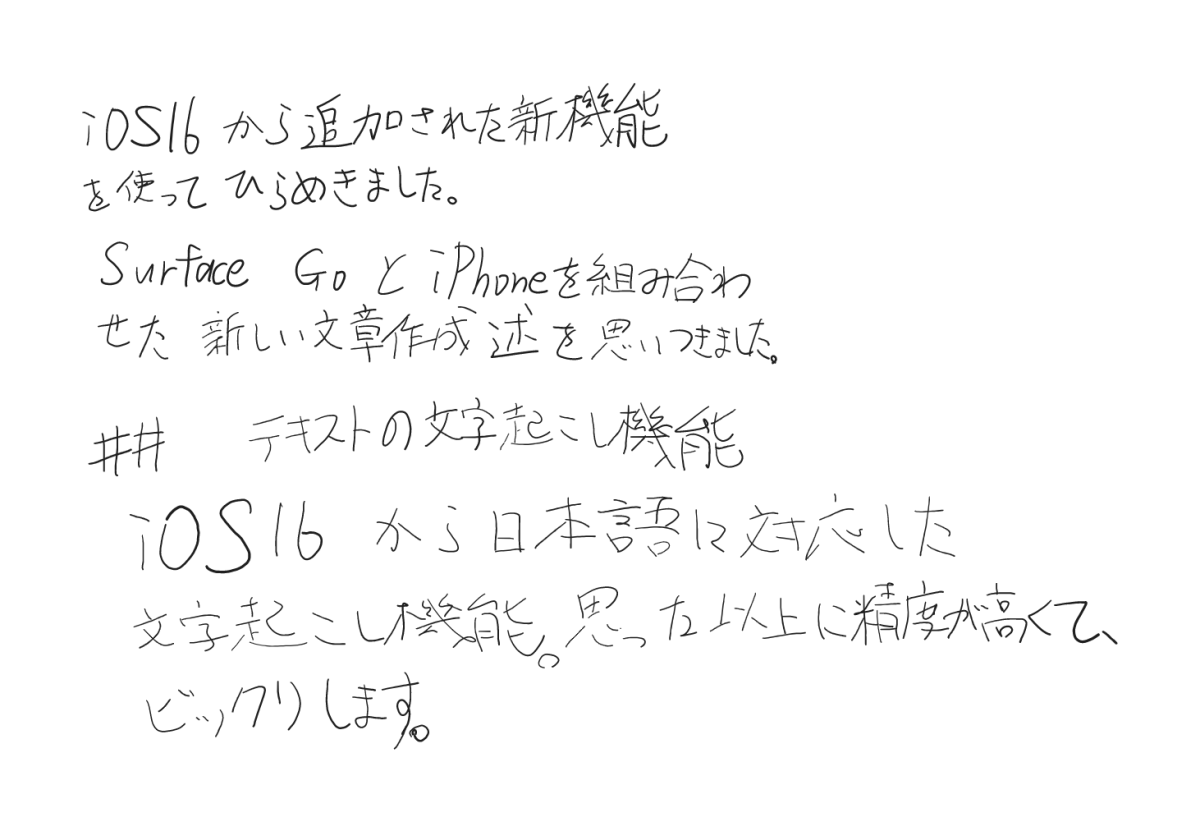 iOS16 から追加された新機能
を使って ひらめきました。
Surface Go と iPhoneを組み合わ
せた 新しい文章作成 述を思いつきました。
## テキストの文字起こし機能
iOS16 から日本語に対応した
文字起こし機能。思った以上に精度が高くて、
ビックリします。